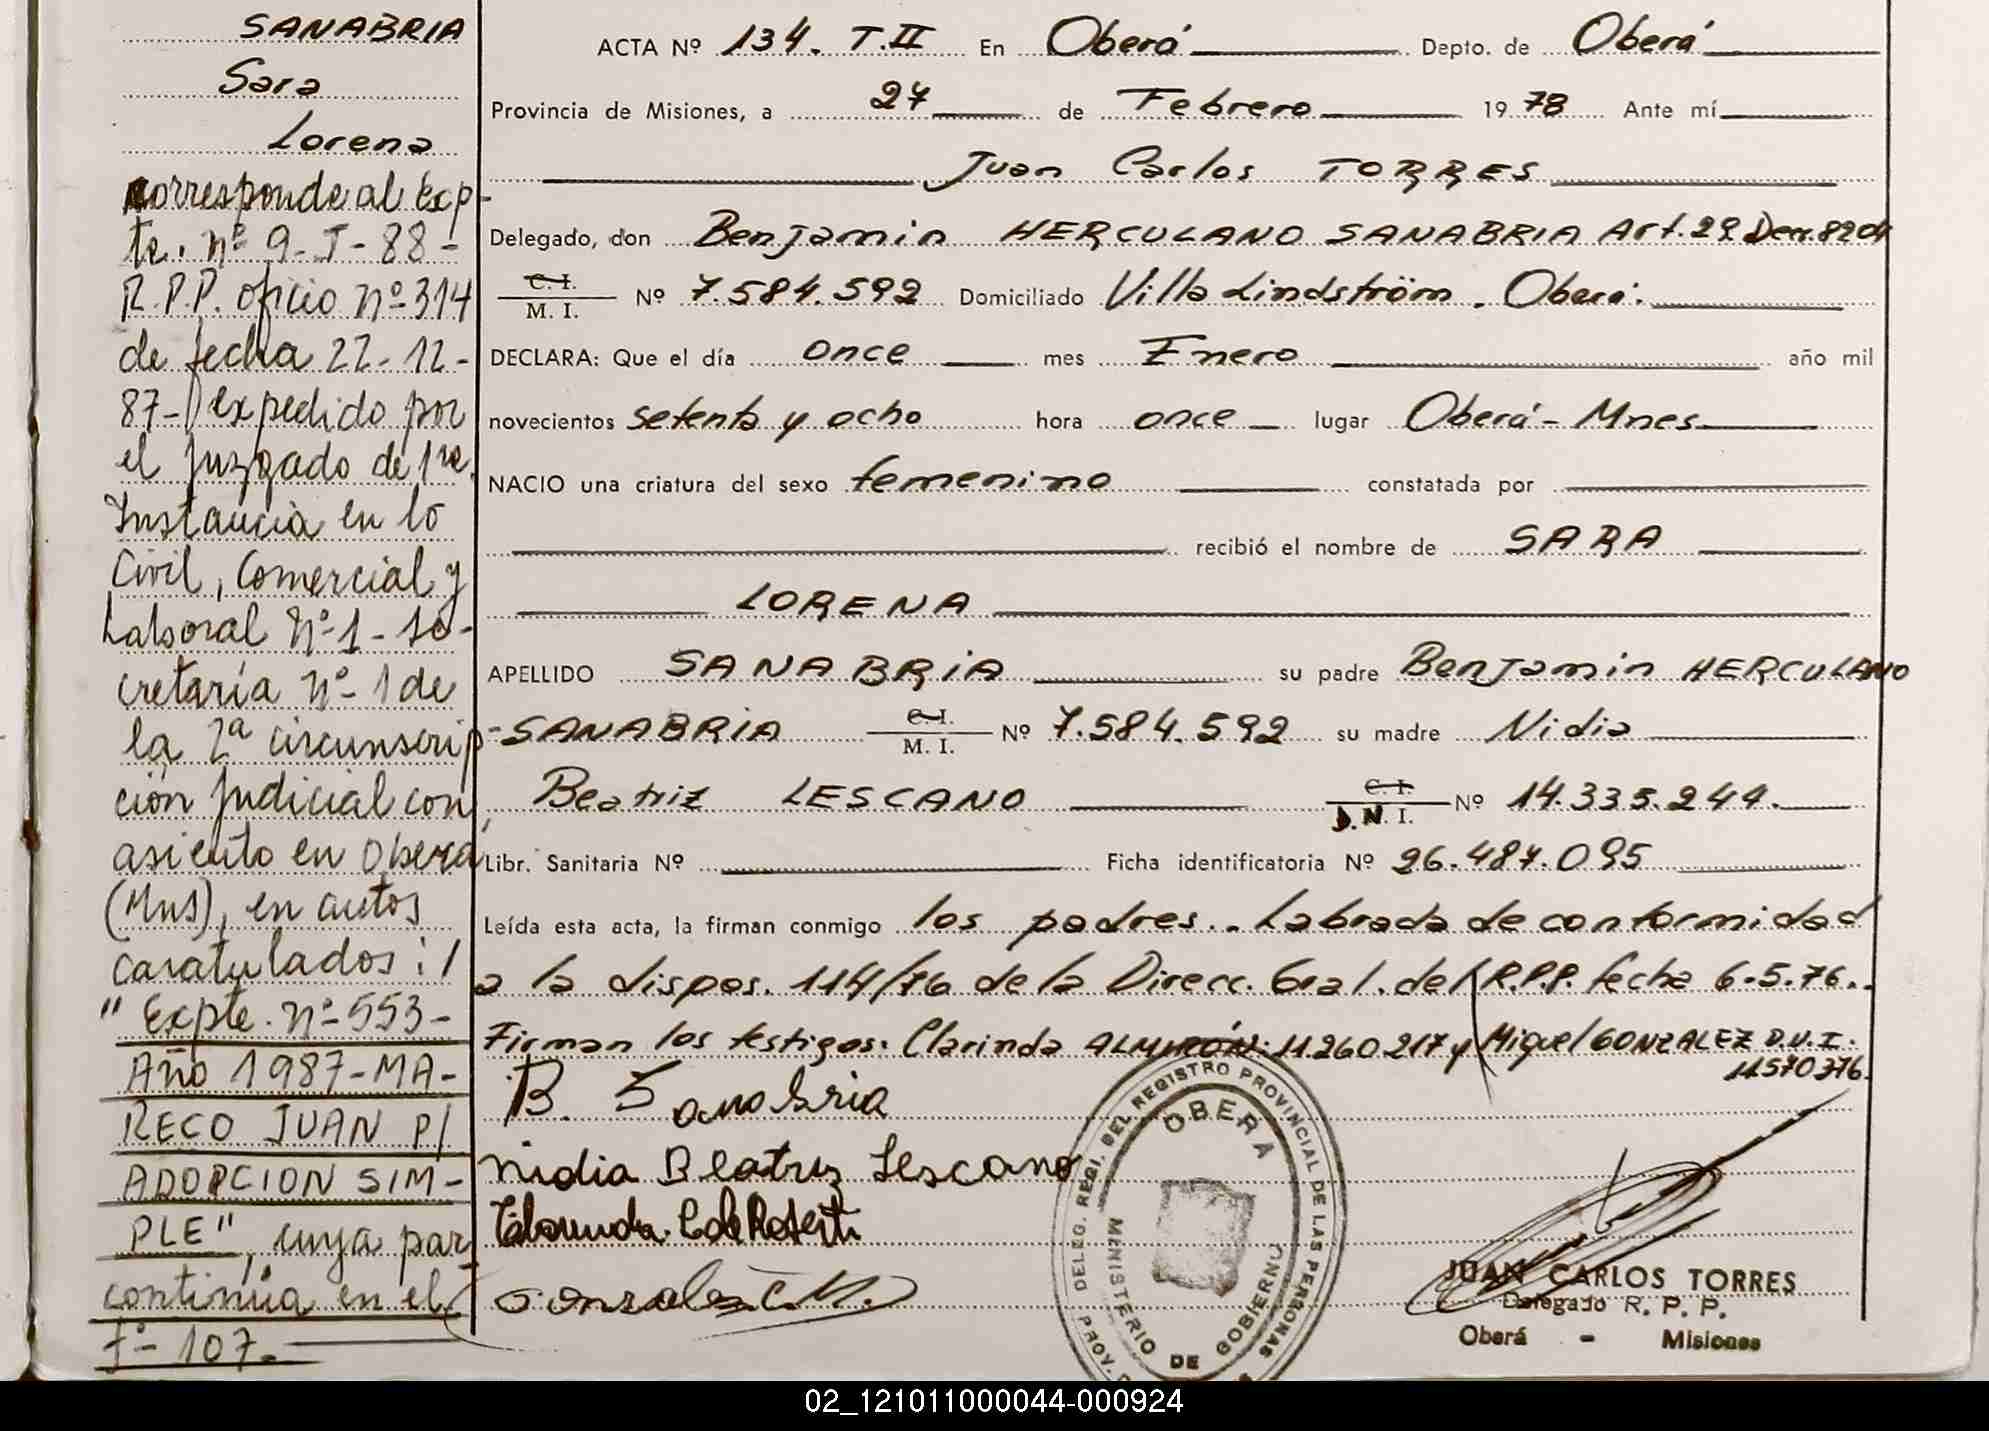 SANABRIA
Sara
Lorena
corresponde al Exp-
te. nº 9-T-88-
R.P.P. oficio nº 314
de fecha 22-12-
87- expedido por
el juzgado de 1ra.
Instancia en lo
Civil, Comercial y
Laboral Nº 1 - Se-
cretaría nº 1 de
la 2ª circunscrip-
ción Judicial con
asiento en Oberá
(Mns), en autos
caratulados: /
" Expte. nº 553-
Año 1987-MA-
RECO JUAN P/
ADOPCION SIM-
PLE", cuya par
continúa en el
fº 107.-
ACTA Nº 134. T.II En Oberá Depto. de Oberá
Provincia de Misiones, a 27 de Febrero 1978 Ante mí
Juan Carlos TORRES
Delegado, don Benjamin HERCULANO SANABRIA Art. 29 Decr. 8204
C. I.
M. I. Nº 7.584.592 Domiciliado Villa Lindström. Oberá.
DECLARA: Que el día once mes Enero año mil
novecientos setenta y ocho hora once lugar Oberá - Mnes
NACIO una criatura del sexo femenino constatada por
recibió el nombre de SARA
LORENA
APELLIDO SANABRIA su padre Benjamin HERCULANO
SANABRIA C. I. M. I. Nº 7.584.592 su madre Nidia
Beatriz LESCANO C. I. D. N. I. Nº 14.335.244.
Libr. Sanitaria Nº Ficha identificatoria Nº 26.487.095
Leída esta acta, la firman conmigo los padres.. Labrada de conformidad
a la dispos. 114/76 de la Direcc. Gral. del R.P.P. fecha 6.5.76..
Firman los testigos: Clarinda ALMIRÓN: 11260217 y Miguel GONZALEZ D.N.I.
11570376.
B. Sanabria
Nidia Beatriz Lescano
Gonzalez C. M.
DELEG. REGI. DEL REGISTRO PROVINCIAL DE LAS PERSONAS
OBERÁ
MINISTERIO DE GOBIERNO
PROV. D
JUAN CARLOS TORRES
Delegado R. P. P.
Oberá - Misiones
02_121011000044-000924